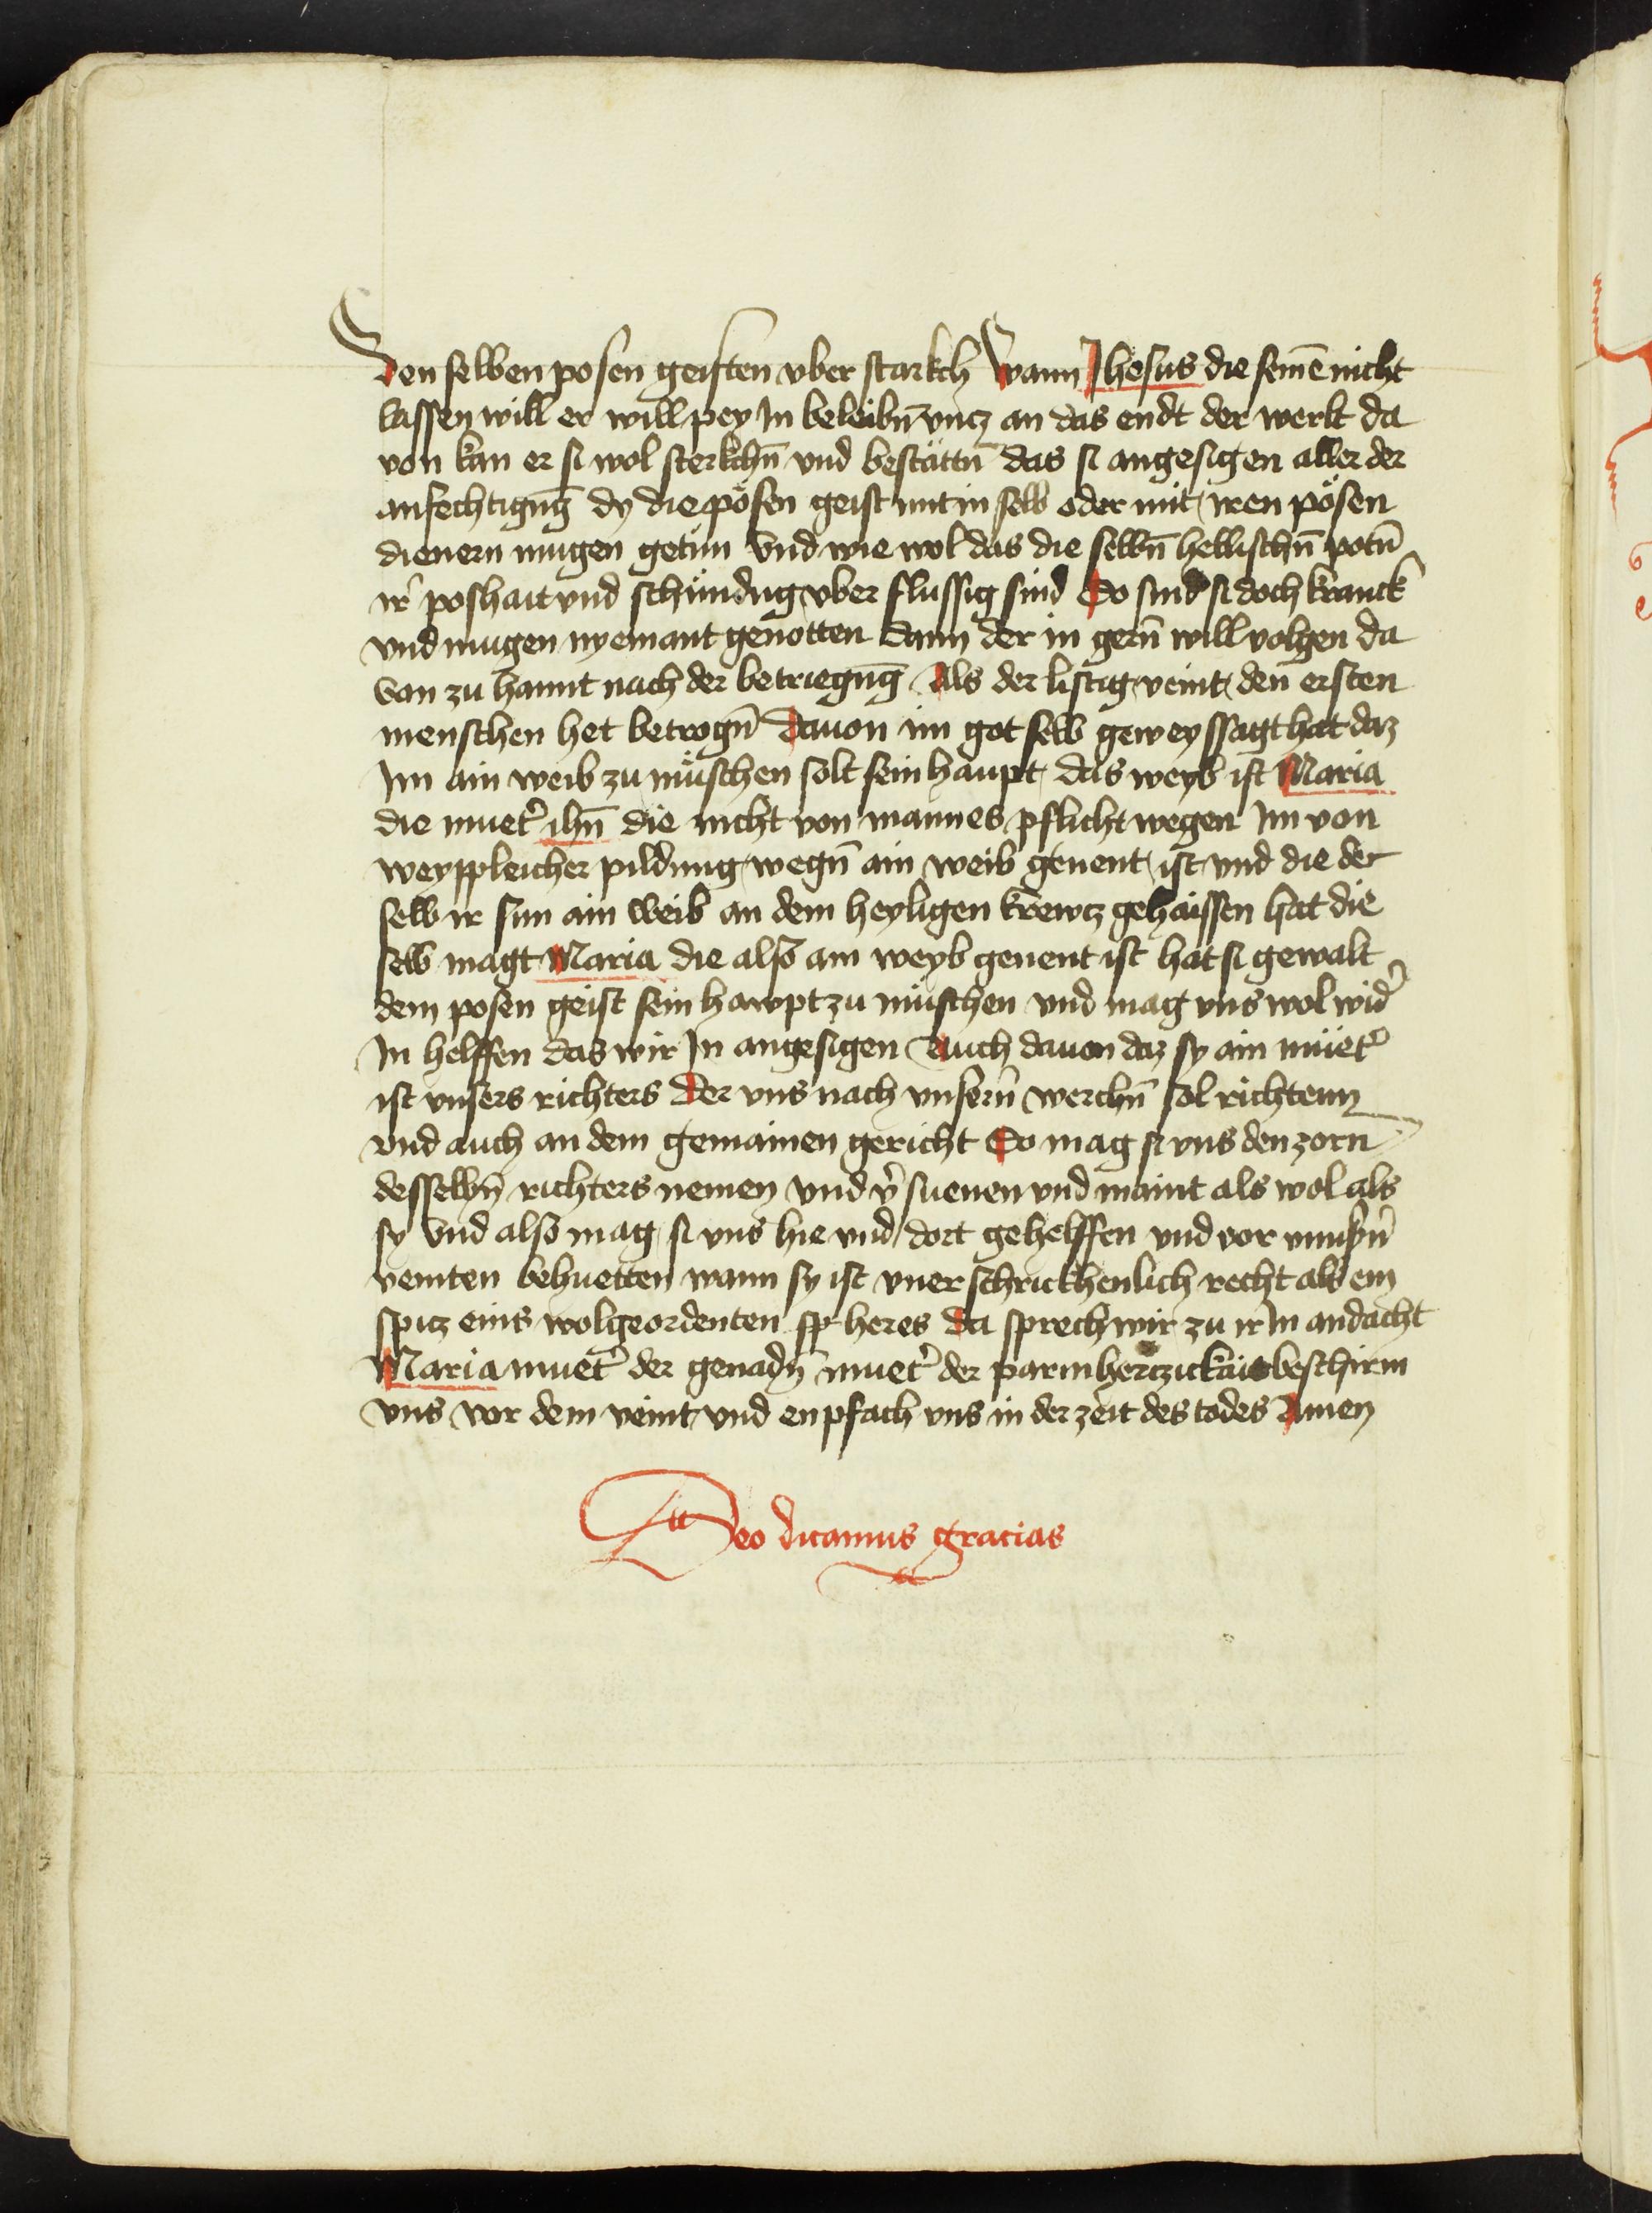 den selben posen geisten vber starkch Wann Jhesus die sein̄e nicht
lassen will er will pey Jn beleibn̄ vncz an das endt der werlt da
von kan er si wol sterkchn̄ vnd bestättn̄ das si angesigen aller der
anfechtigūg dy die pösen geist mit in selb oder mit iren pösen
dienern mugen getun Vnd wie wol das die selbn̄ hellischn̄ potn̄
ir̄ poshait vnd schündug vber flussig sind So sind si doch kranck
vnd mugen nyemant genotten dann der in gern̄ will volgen da
von zu hannt nach der betriegūg Als der listig veint den ersten
menschen het betrogn̄ dauon im got selb geweyssagt hat daz
Jm ain weib zu müschen solt sein haupt das weyb ist Maria
die muet̄ ihū die nicht von mannes pflicht wegen Jm von
weyppleicher pildung wegn̄ ain weib genent ist vnd die der
selb ir sun ain weib an dem heyligen krewcz gehaissen hat die
selb magt Maria die also ain weyb genent ist hat si gewalt
dem posen geist sein hawpt zu müschen vnd mag vns wol wid̄
Jn helffen das wir Jn angesigen Auch dauon daz sy ain müet̄
ist vnsers richters der vns nach vnsern̄ werchn̄ sol richtenn
vnd auch an dem gemainen gericht So mag si vns den zorn
desselbn̄ richters nemen vnd v̄suenen vnd maint als wol als
sy Vnd also mag si vns hie vnd dort gehelffen vnd vor vnnsn̄
veinten behuetten wann sy ist vnerschrickhenlich recht als ein
spicz eins wolgeordenten sp heres da sprech wir zu ir Jn andacht
Maria muet̄ der genadn̄ muet̄ der parmherczickait beschirm
vns vor dem veint vnd enpfach vns in der zeit des todes Amen
Deo dicamus gracias